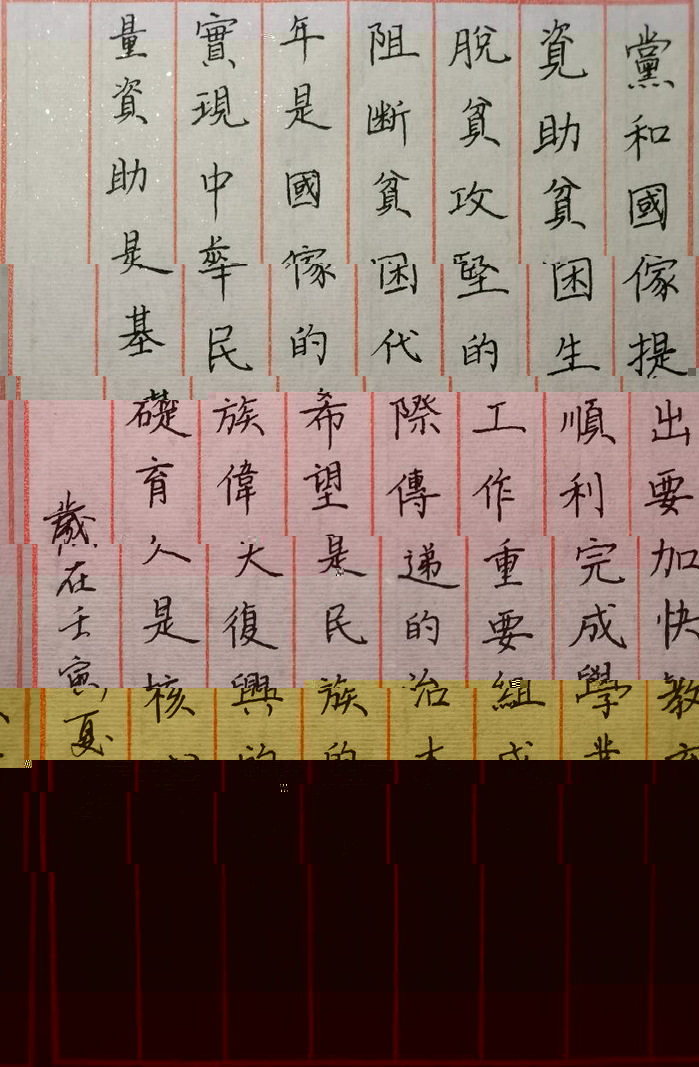 黨和國傢提出要加快教
資助貧困生順利完成學業
脫貧攻堅的工作重要組成
阻断貧困代際傳递的治本
年是國傢的希望是民族的
實現中華民族偉大復興的
量資助是基礎育人是核
歲在壬寅夏